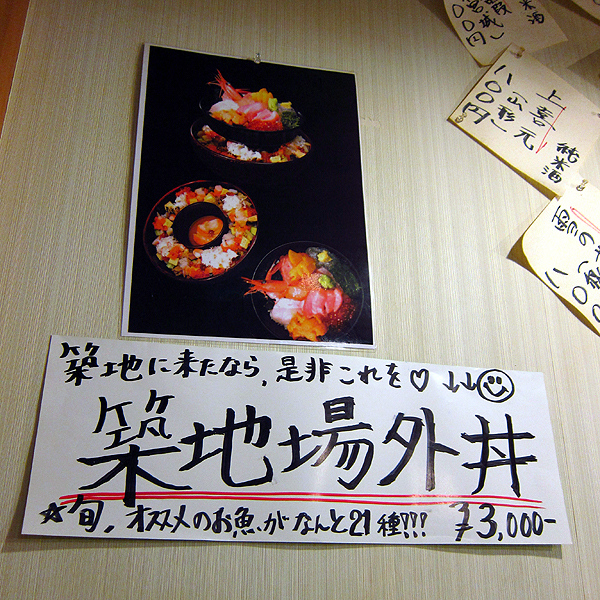 築地に来たなら、是非これを♡↓↓
築地場外丼
☆旬、オススメのお魚がなんと21種!!! ¥3,000-
上喜元
純米酒
(山形)
八〇〇円
米酒
〇〇円